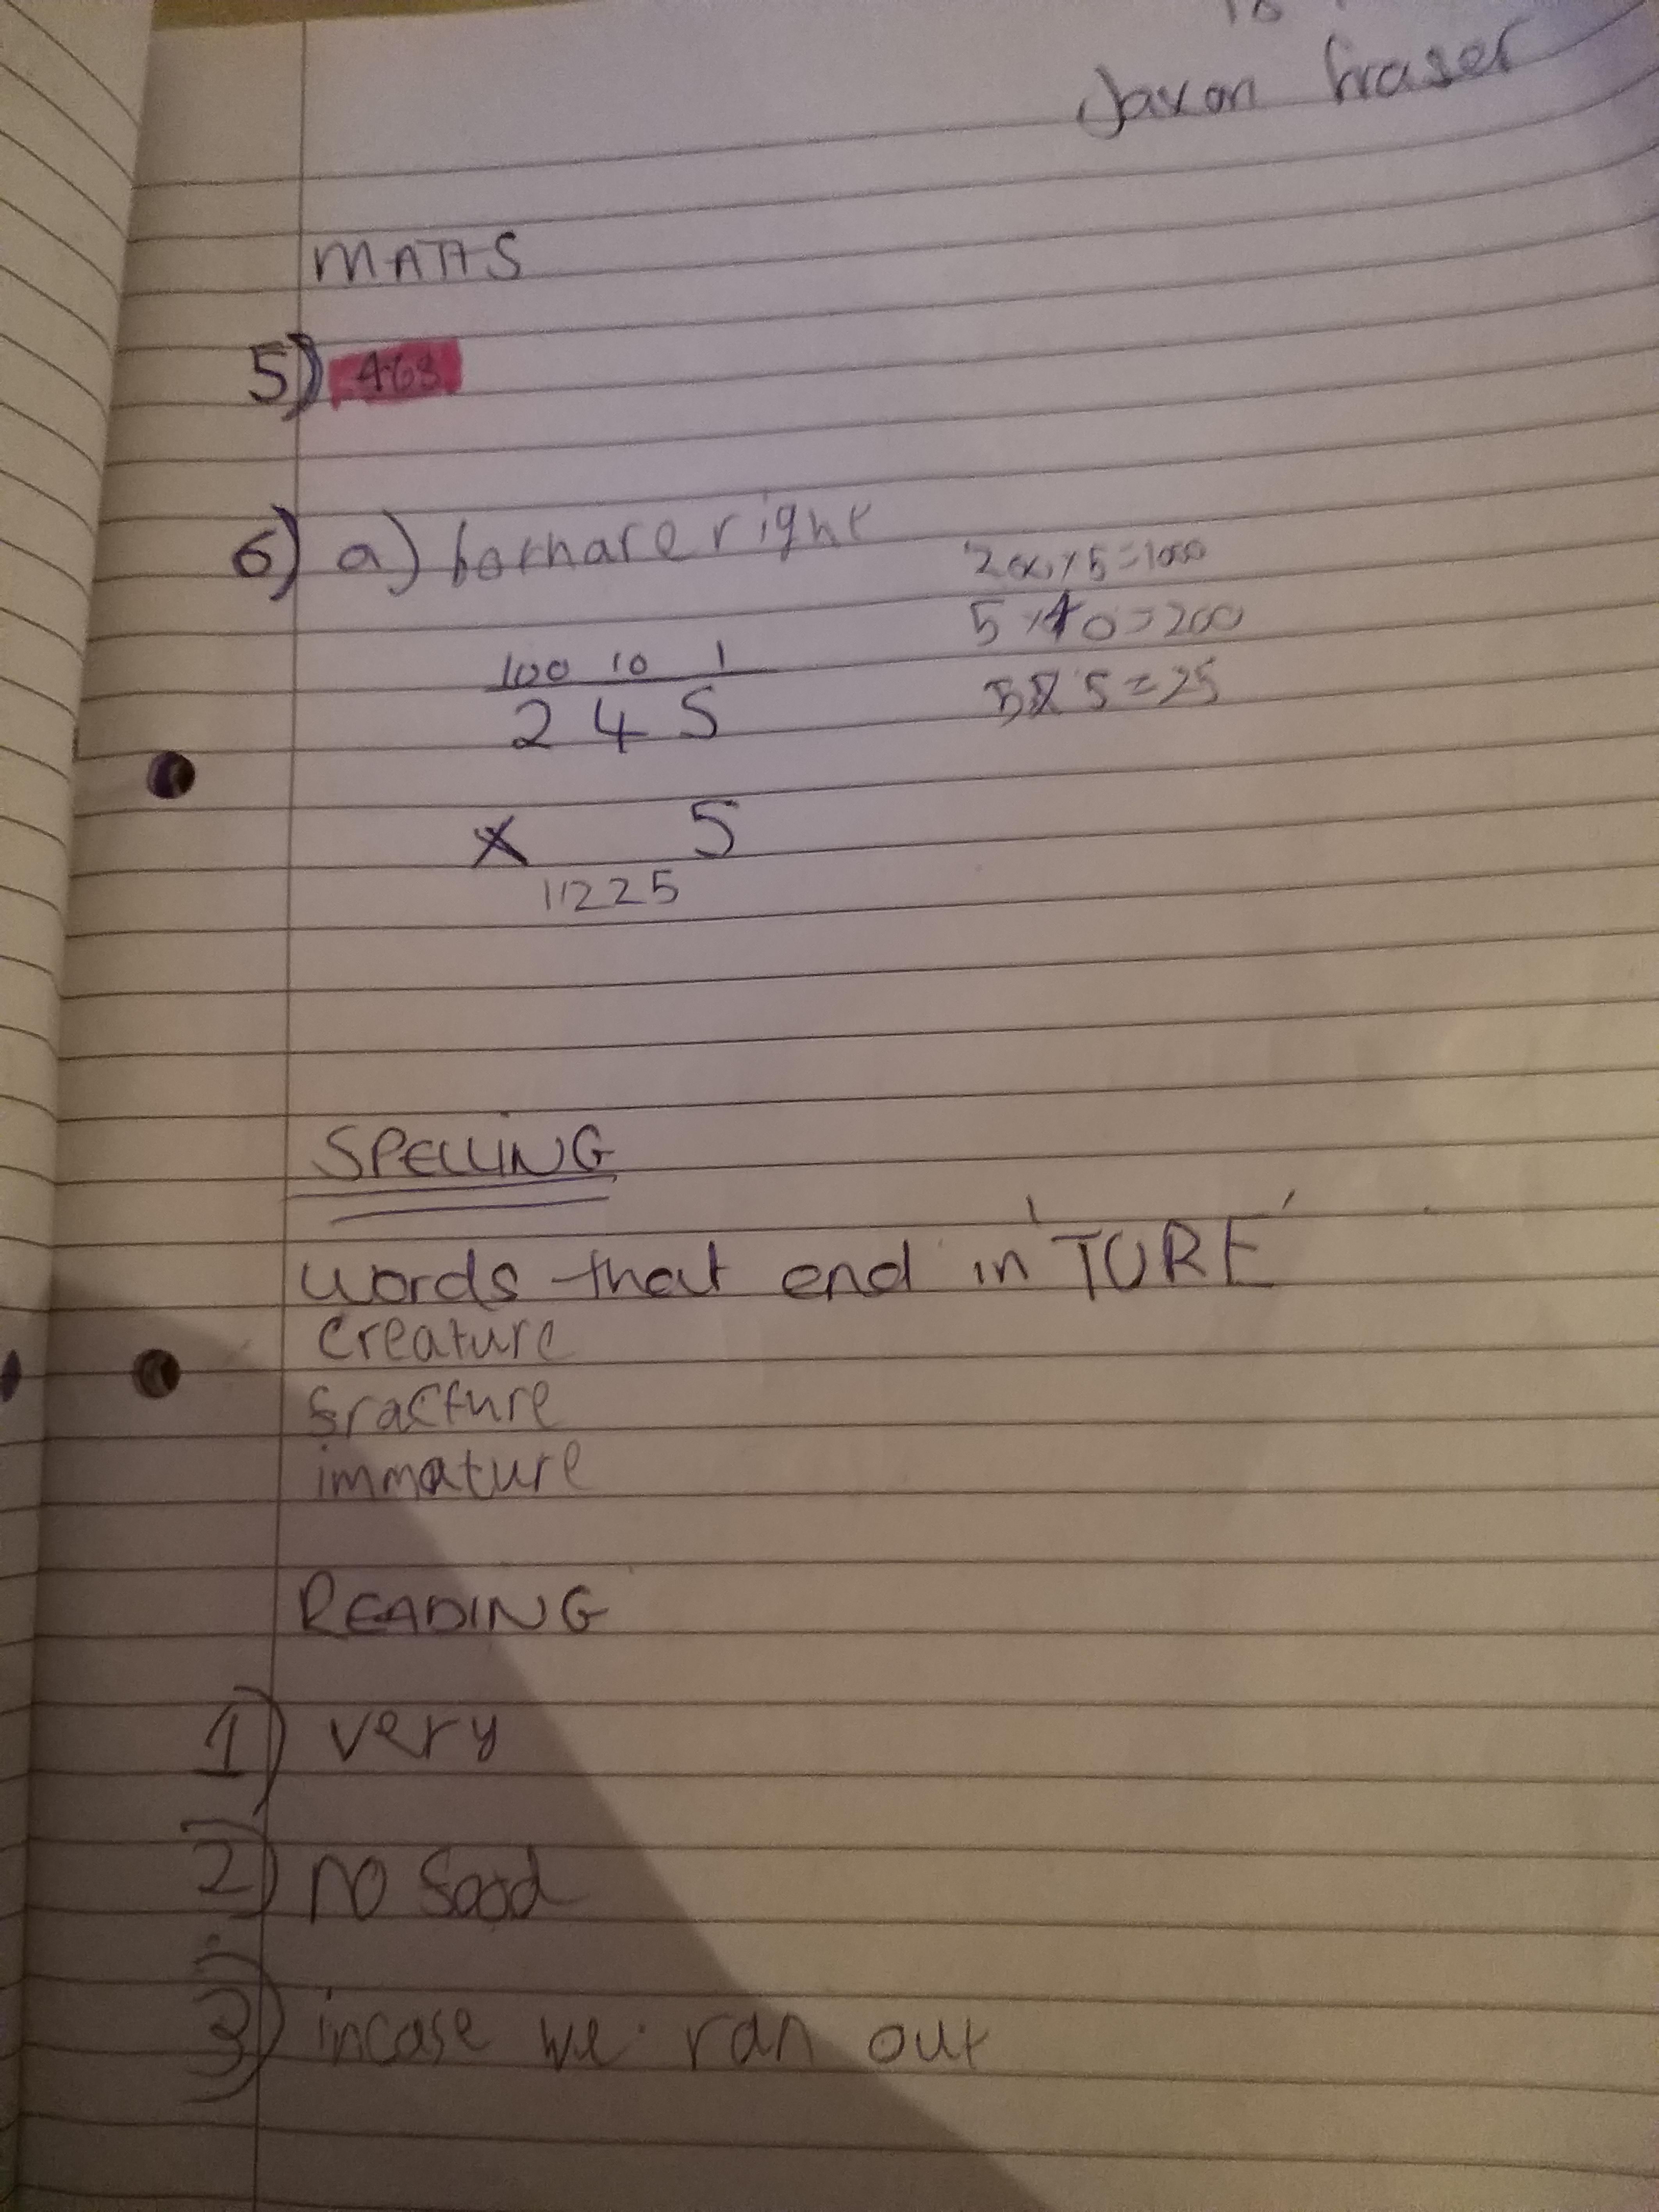 Jaxon fraser
MATHS
5) 468
6) a) both are right
200 x 5 = 1000
5 x 40 = 200
5 x 5 = 25
100 10 1
2 4 5
x 5
11225
SPELLING
words that end in 'TURE'
creature
fracture
immature
READING
1) very
2) no food
3) incase we ran out